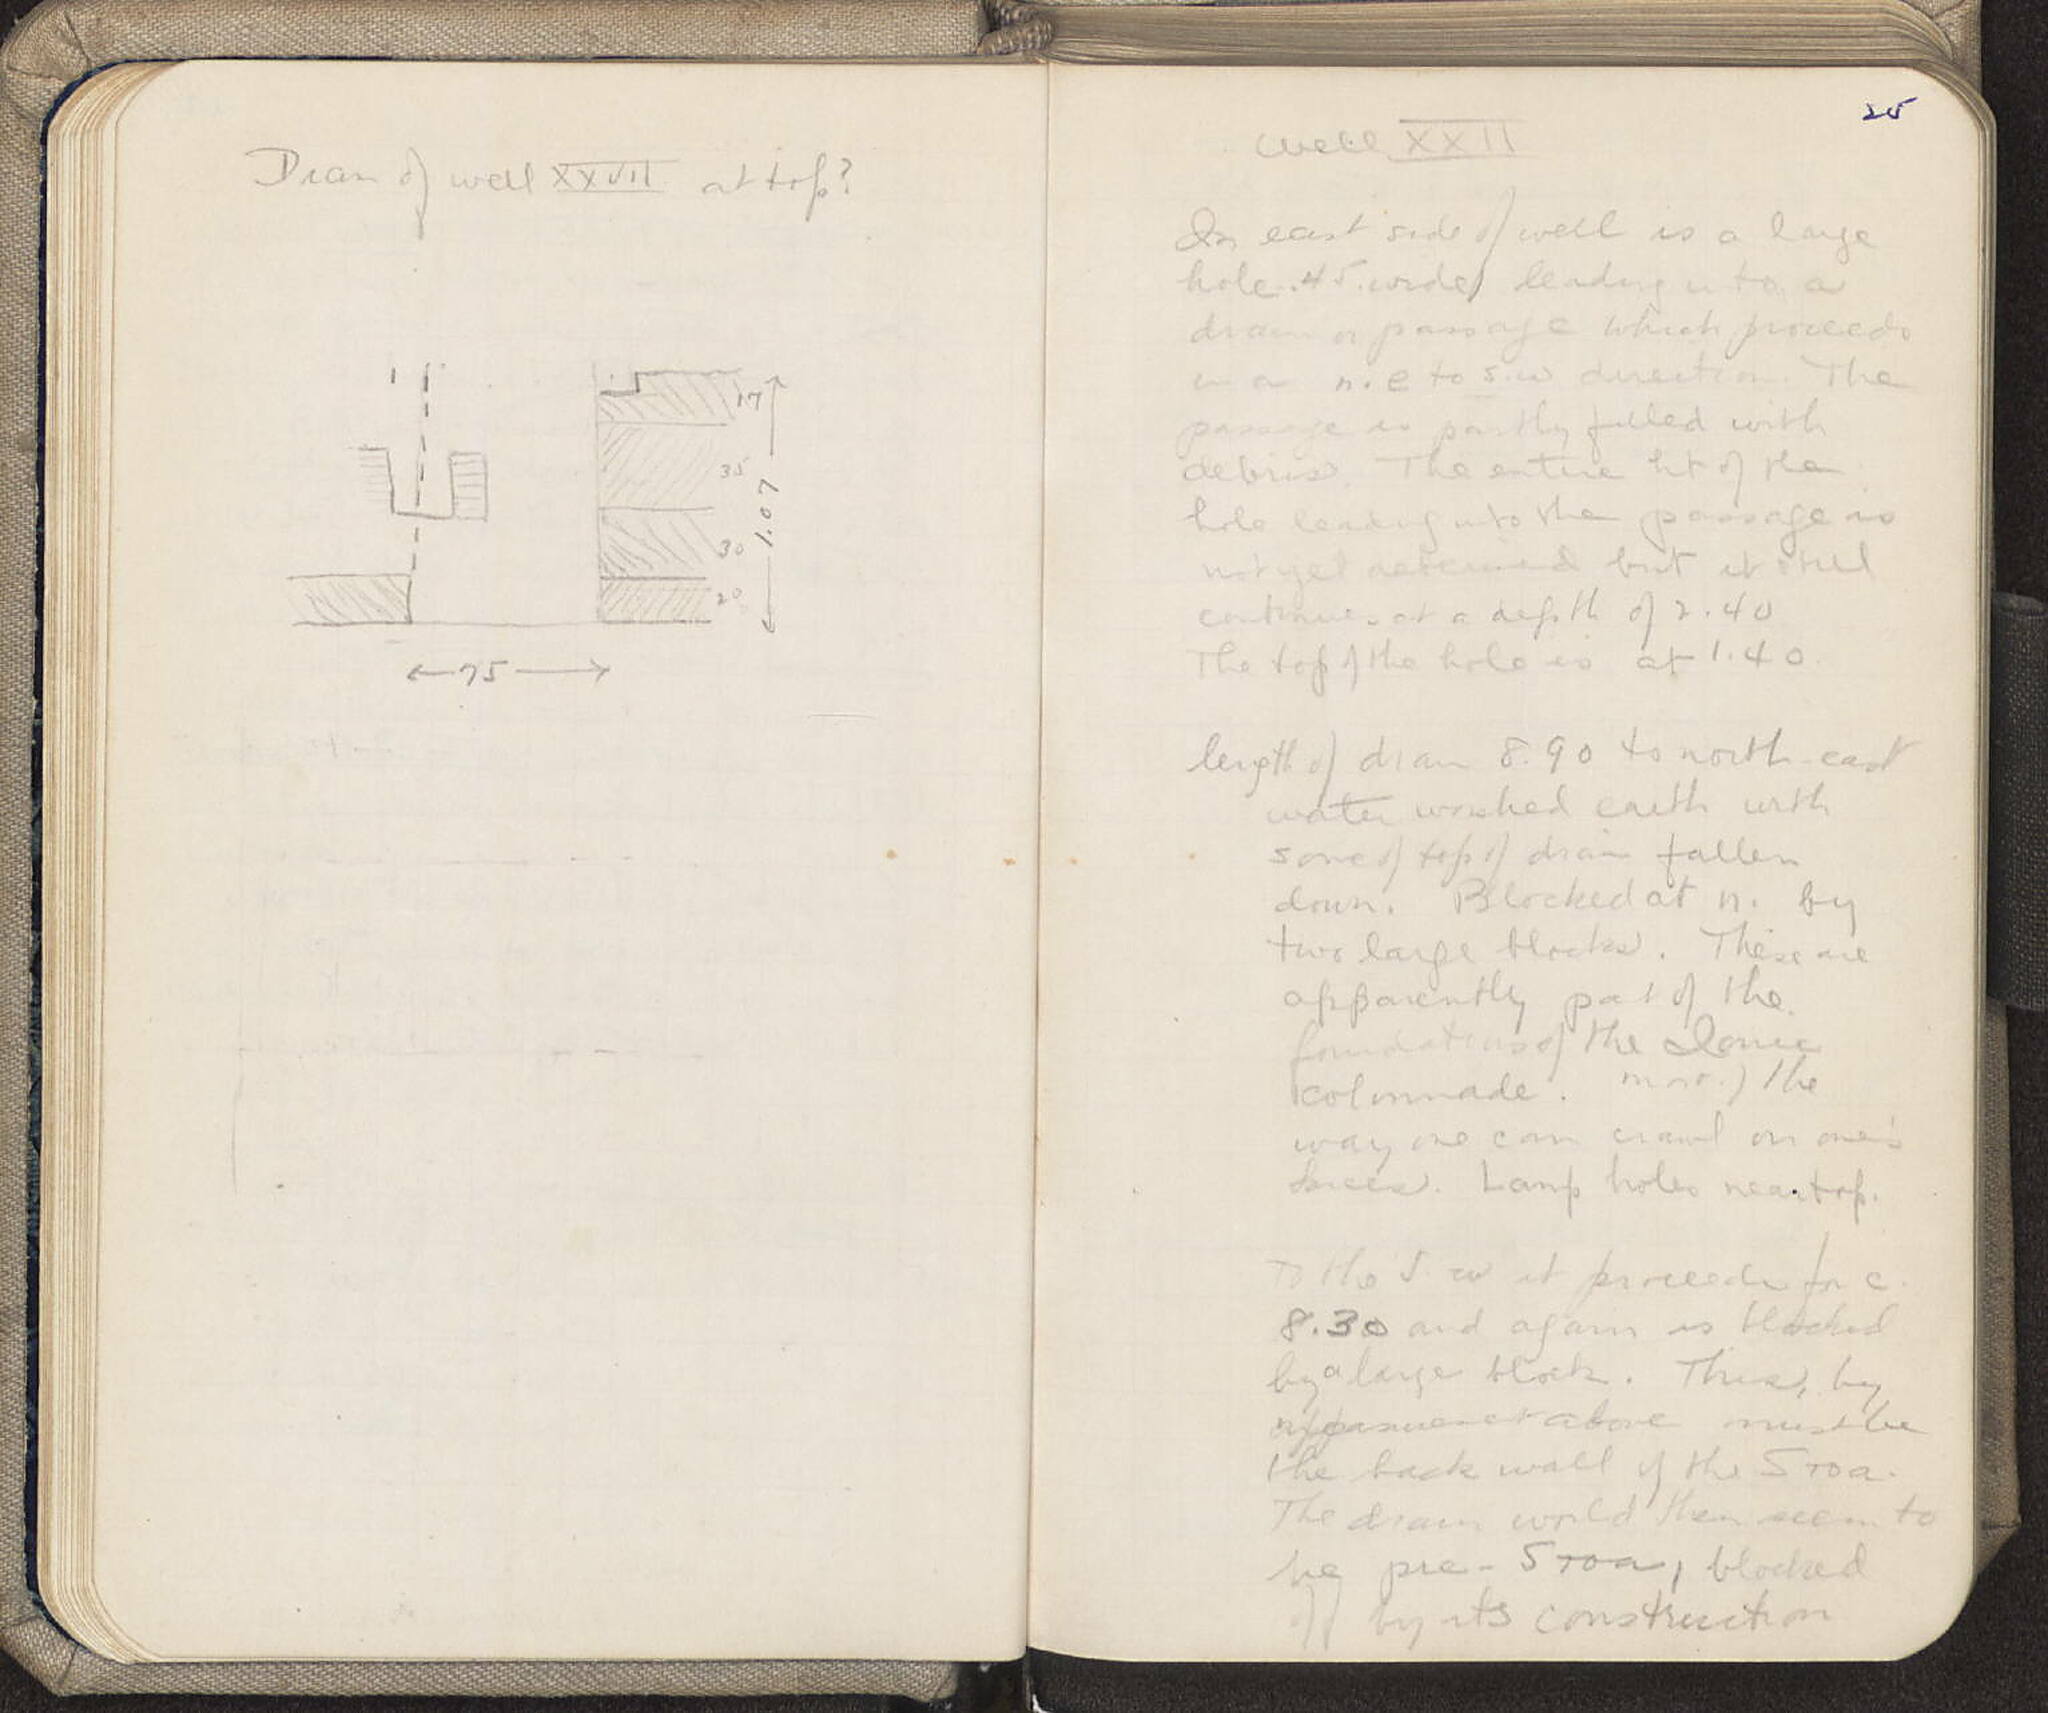 Diam of well XXVII at top?
17
35
30
20
1.07
75
25
Well XXII
In east side of well is a large
hole .45 wide, leading into a
drain or passage which proceeds
in a n.e to s.w direction. The
passage is partly filled with
debris. The entire ht of the
hole leading into the passage is
not yet determined but it still
continues at a depth of 2.40
The top of the hole is at 1.40
length of drain 8.90 to north-east
water washed earth with
some of top of drain fallen
down. Blocked at n. by
two large blocks. These are
apparently part of the
foundations of the Ionic
colonnade. most of the
way one can crawl on one's
knees. Lamp holes near top.
To the S.w it proceeds for c.
8.30 and again is blocked
by a large block. This, by
above must be
the back wall of the Stoa.
The drain would then seem to
be pre-Stoa, blocked
off by its construction